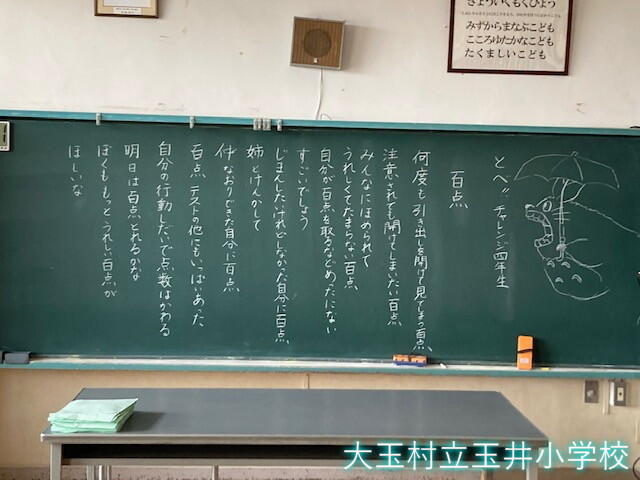 きょういくもくひょう
みずからまなぶこども
こころゆたかなこども
たくましいこども
とべ!! チャレンジ四年生
百点
何度も引き出しを開けて見てしまう百点
注意されても開けてしまいたい百点
みんなにほめられて
うれしくてたまらない百点
自分が百点を取るなどめったにない
すごいでしょう
じまんしたいけれどしなかった自分に百点
姉とけんかして
仲なおりできた自分に百点
百点、テストの他にもいっぱいあった
自分の行動しだいで点数はかわる
明日は百点とれるかな
ぼくももっとうれしい百点が
ほしいな
大玉村立玉井小学校